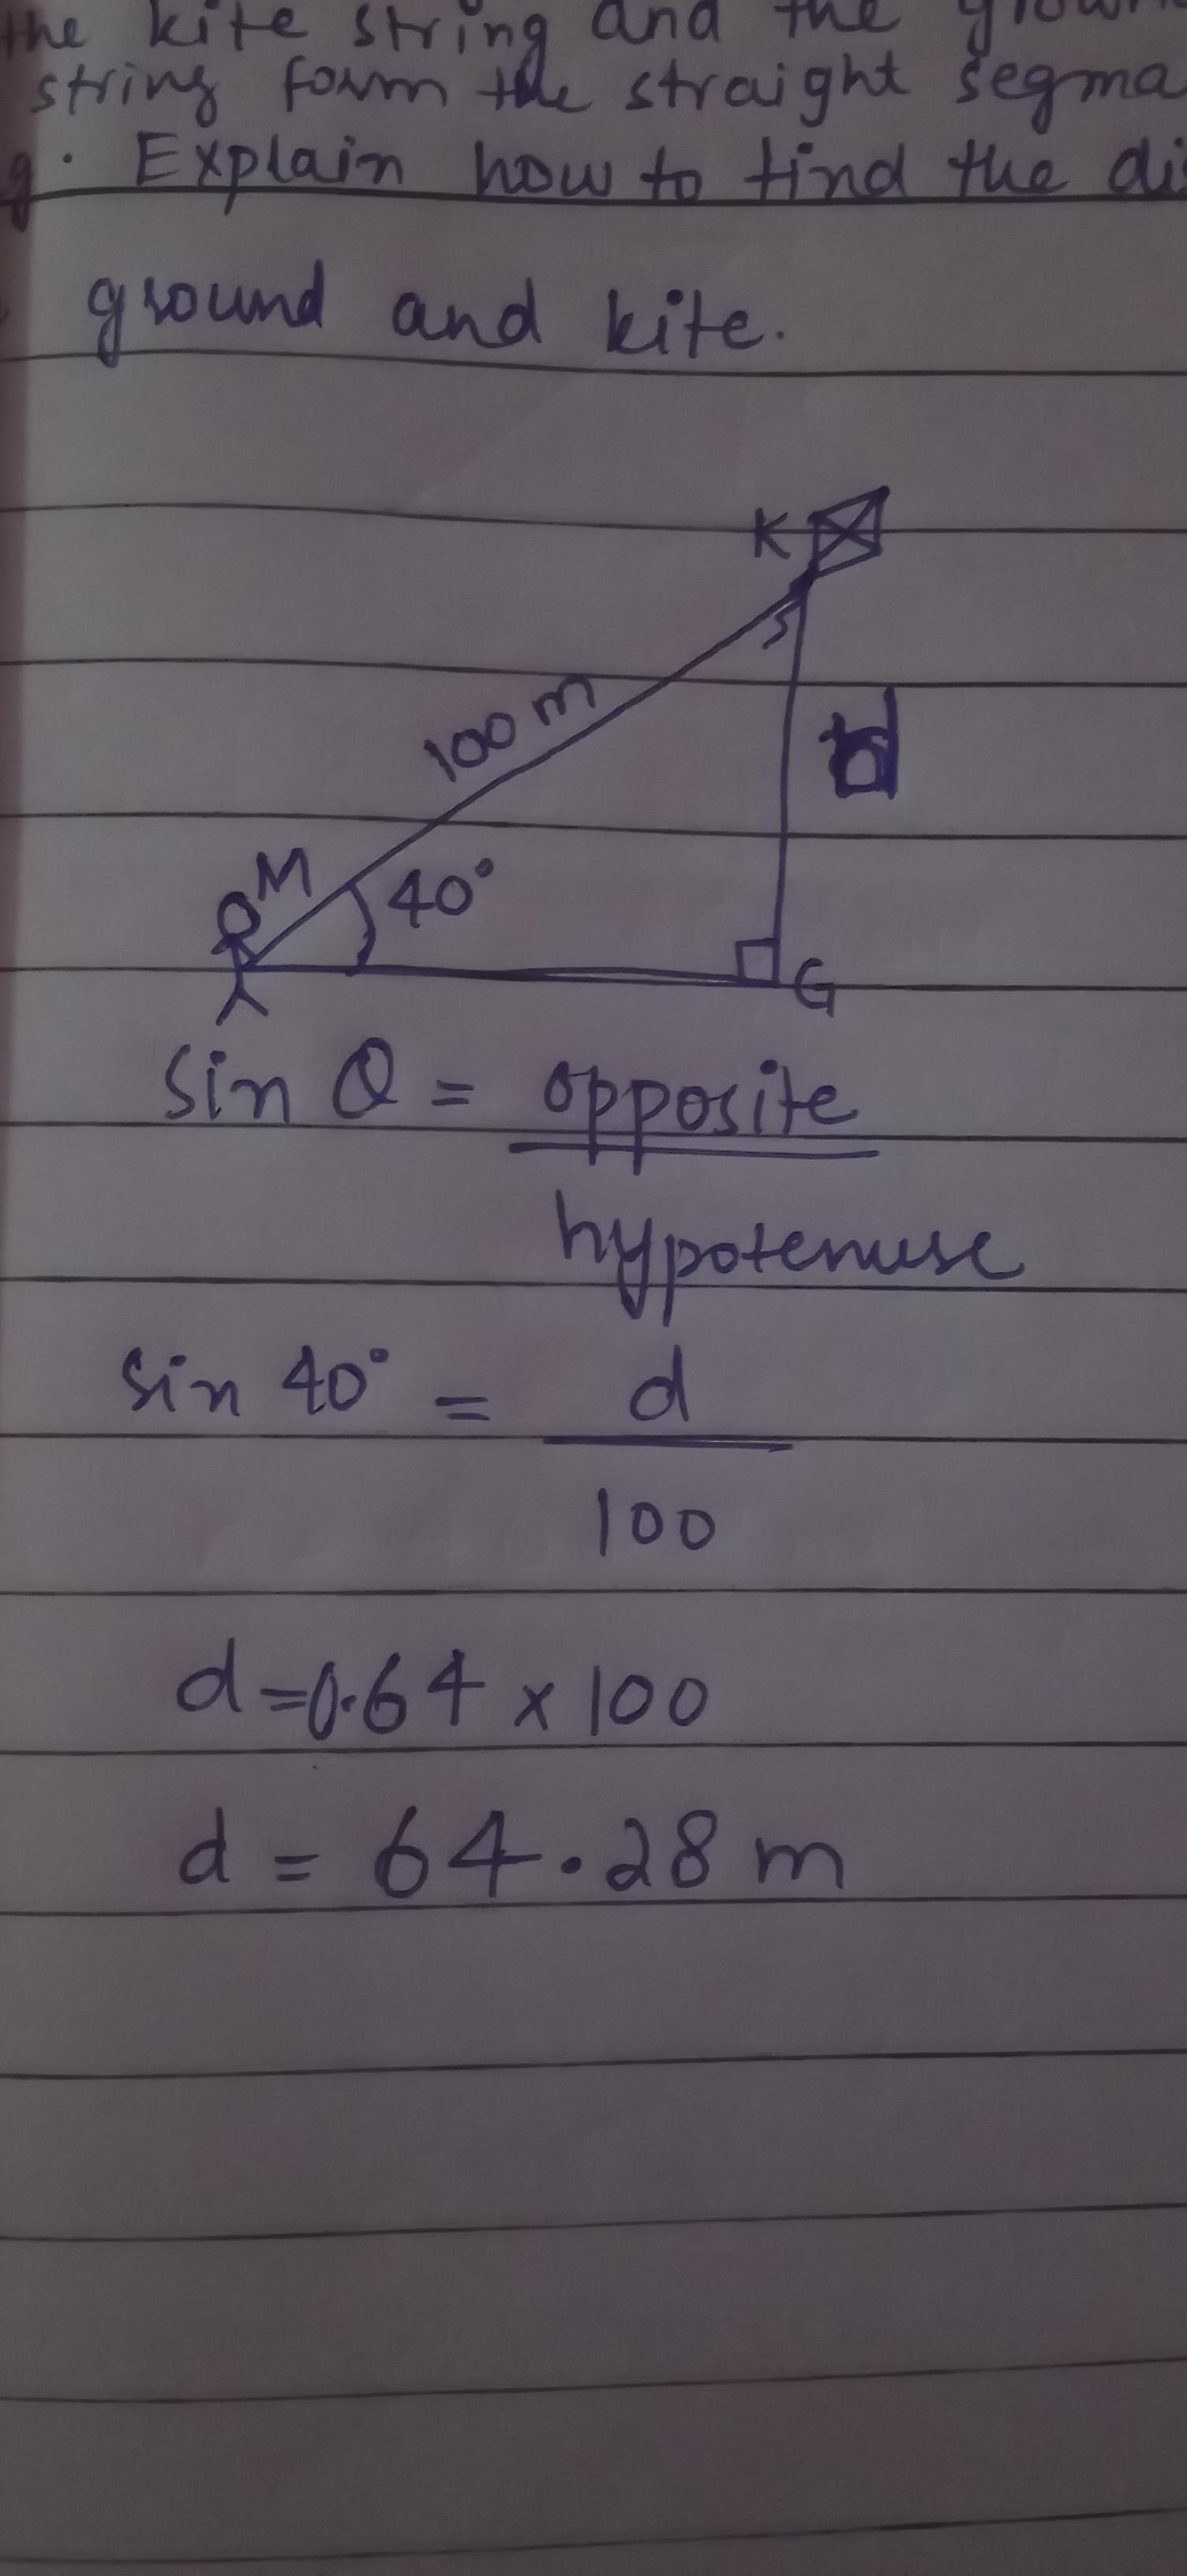 the kite string and the
string form the straight
Explain how to find the
ground and kite.
K
100 m
d
M
40°
G
sin Q = opposite
hypotenuse
sin 40° = d
100
d = 0.64 x 100
d = 64.28 m